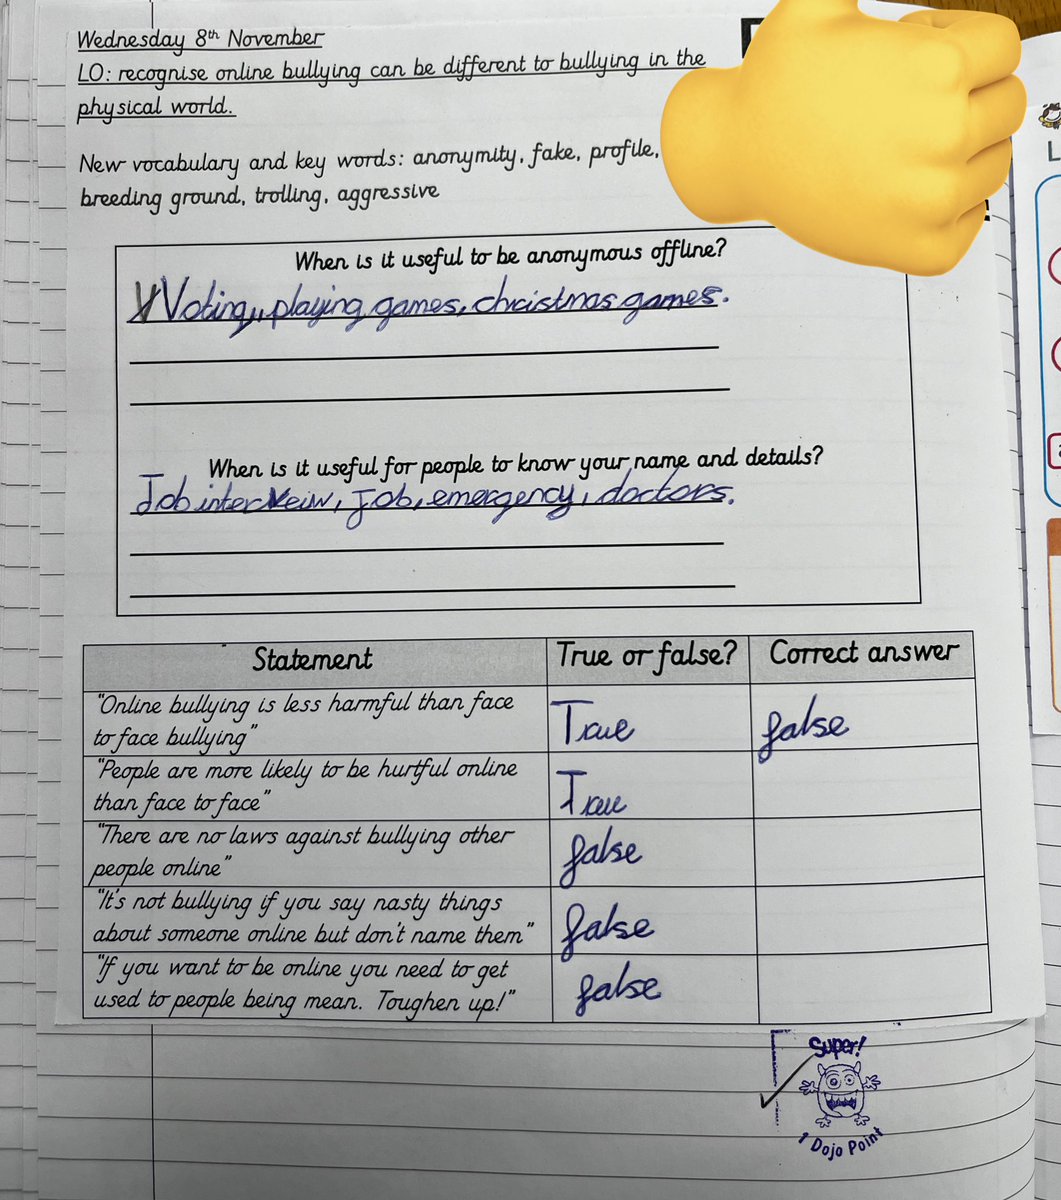 Wednesday 8th November
LO: recognise online bullying can be different to bullying in the
physical world.
New vocabulary and key words: anonymity, fake, profile,
breeding ground, trolling, aggressive
When is it useful to be anonymous offline?
Voting, playing games, christmas games.
When is it useful for people to know your name and details?
Job interveiw, Job, emergency, doctors.
Statement True or false? Correct answer
"Online bullying is less harmful than face
to face bullying"
True false
"People are more likely to be hurtful online
than face to face"
True
"There are no laws against bullying other
people online"
false
"It's not bullying if you say nasty things
about someone online but don't name them"
false
"If you want to be online you need to get
used to people being mean. Toughen up!"
false
Super!
1 Dojo Point
L